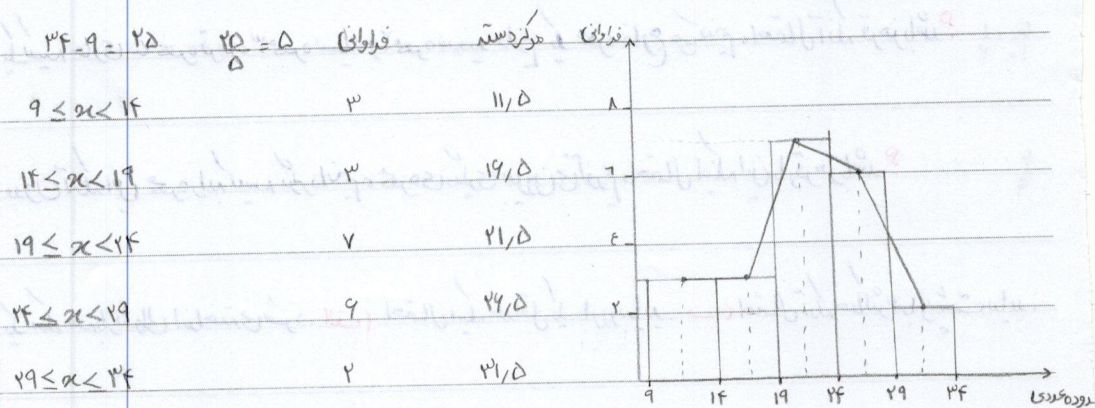 ۳۴-۹= ۲۵ ۲۵/۵ = ۵ فراوانی مرکز دسته
۹ ≤ x < ۱۴ ۳ ۱۱,۵
۱۴ ≤ x < ۱۹ ۳ ۱۶,۵
۱۹ ≤ x < ۲۴ ۷ ۲۱,۵
۲۴ ≤ x < ۲۹ ۶ ۲۶,۵
۲۹ ≤ x ≤ ۳۴ ۲ ۳۱,۵
فراوانی
۸
۶
٤
۲
۹ ۱۴ ۱۹ ۲۴ ۲۹ ۳۴
دوده عددی